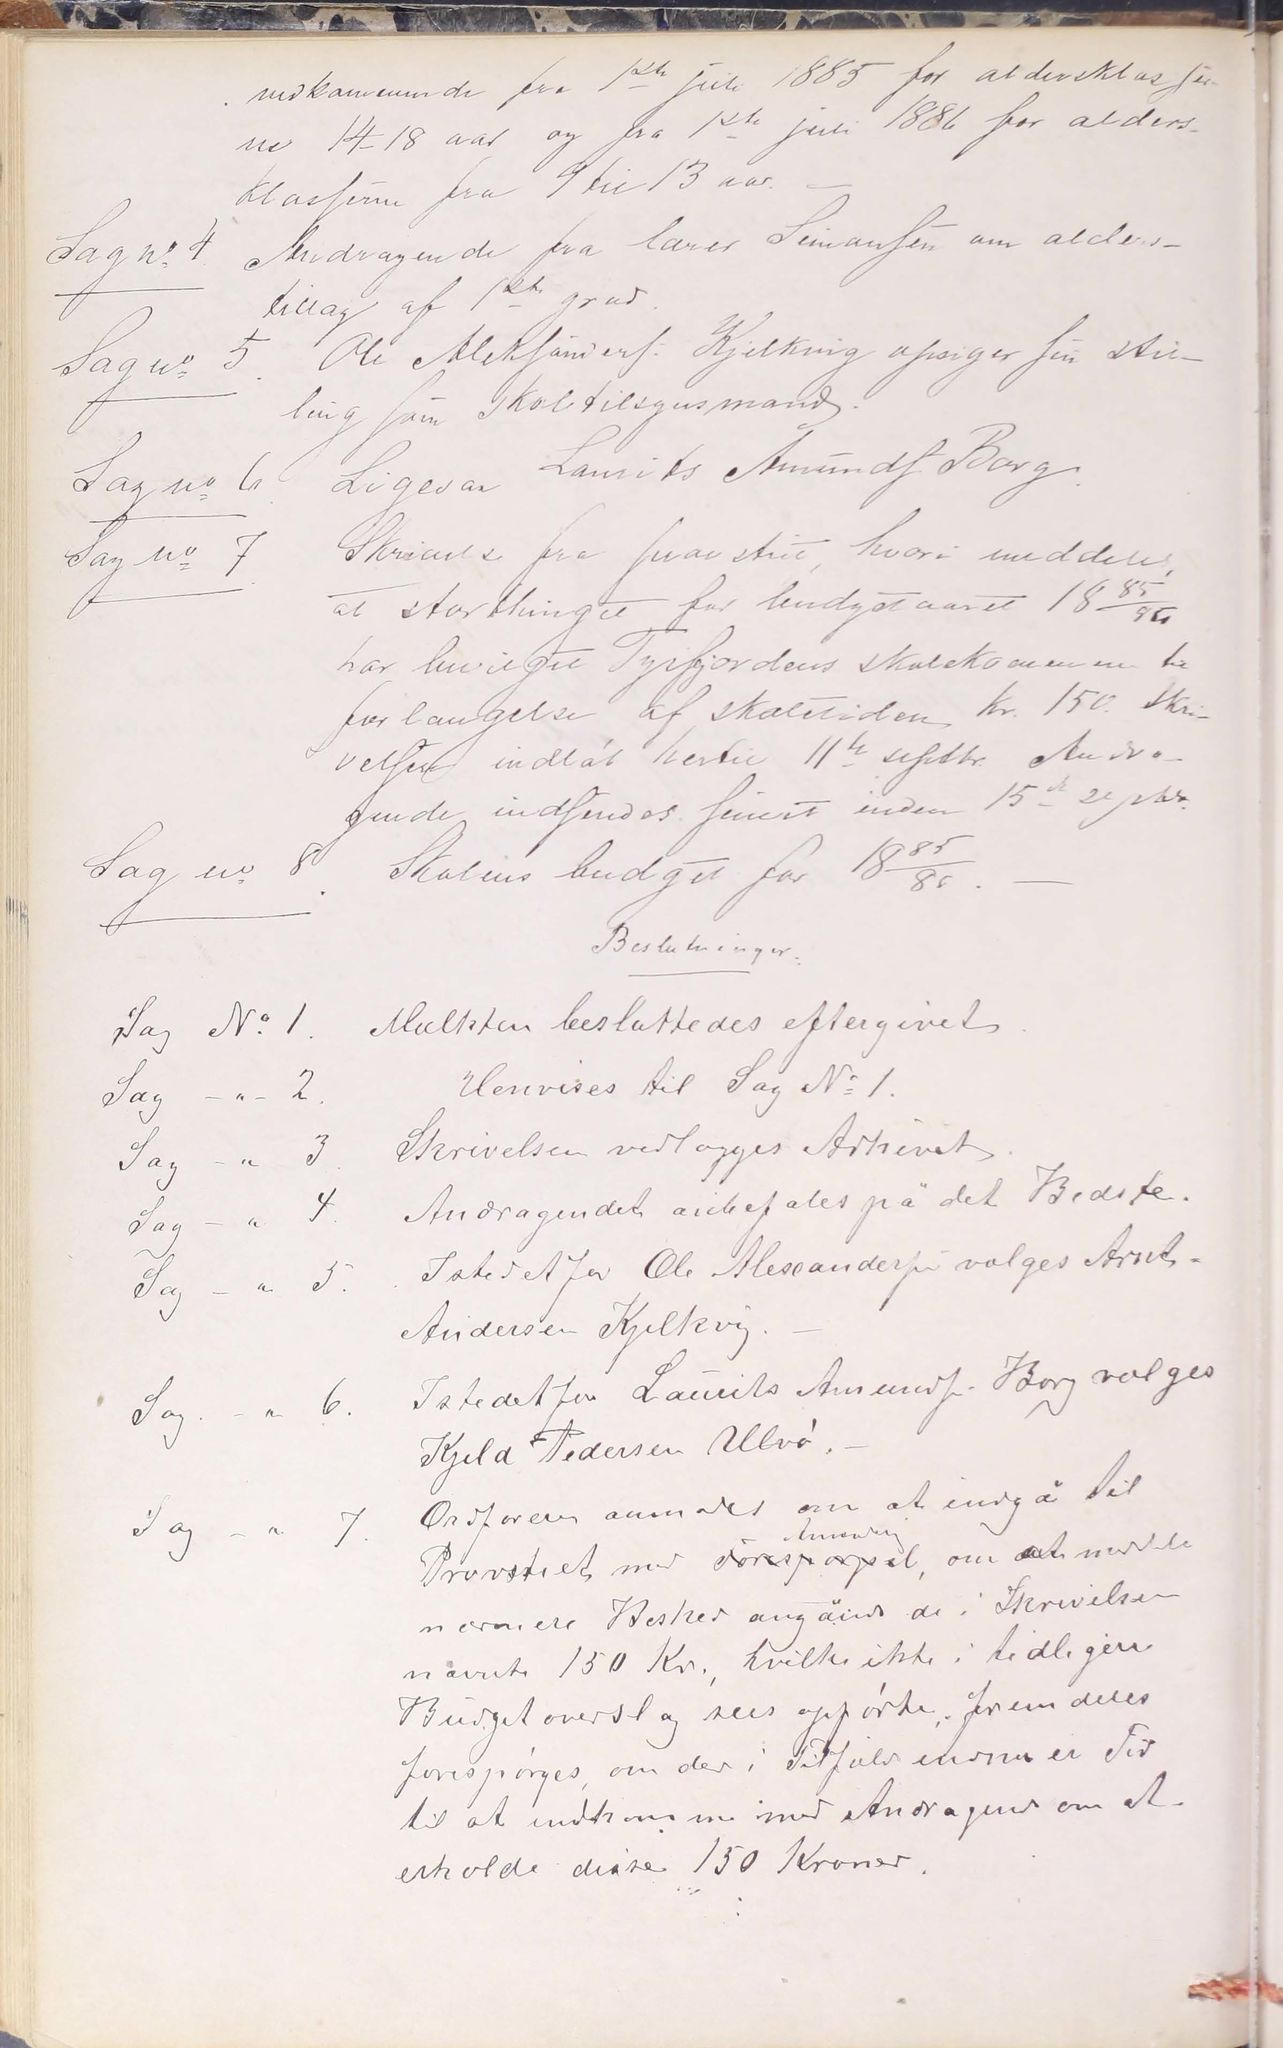 vedkommende fra 1ste juli 1885 for aldersklasser-
ne 14-18 aar og fra 1ste juli 1886 for alders-
klasserne fra 9 til 13 aar. —
Sag no 4. Andragende fra lærer Simonsen om alders-
tillæg af 1ste grad.
Sag no 5. Ole Aleksanders. Kjelkvig opsiger sin stil-
ling som skoletilsynsmand.
Sag no 6. Ligesaa Laurits Amunds. Borg.
Sag no 7. Skrivelse fra provstiet, hvori meddeles,
at storthinget for budgetaaret 18 85/86
har bevilget Tysfjordens skolekommune til
forlængelse af skoletiden kr. 150. Skri-
velsen indløb hertil 11te septbr. Andra-
gende indsendes senest inden 15de septbr.
Sag no 8. Skolens budget for 18 85/86. —
Beslutninger.
Sag No. 1. Mulkten besluttedes eftergivet.
Sag -"- 2. Henvises til Sag No. 1.
Sag -" 3. Skrivelsen vedlægges Arkivet.
Sag -" 4. Andragendet anbefales på det Bedste.
Sag -" 5. Istedetfor Ole Alexanders. vælges Arnt
Andersen Kjelkvig. —
Sag. -" 6. Istedetfor Laurits Amunds. Borg vælges
Kjeld Pedersen Ulvø. —
Sag -" 7. Ordføreren anmodes om at indgå til
Anmodning
Provstiet med Forespørgsel, om at meddele
nærmere Besked angående de i Skrivelsen
nævnte 150 Kr., hvilke ikke i tidligere
Budgetoverslag sees opførte, fremdeles
forespørges, om der i Tilfælde endnu er Tid
til at indkomme med Andragende om at
erholde disse 150 Kroner.